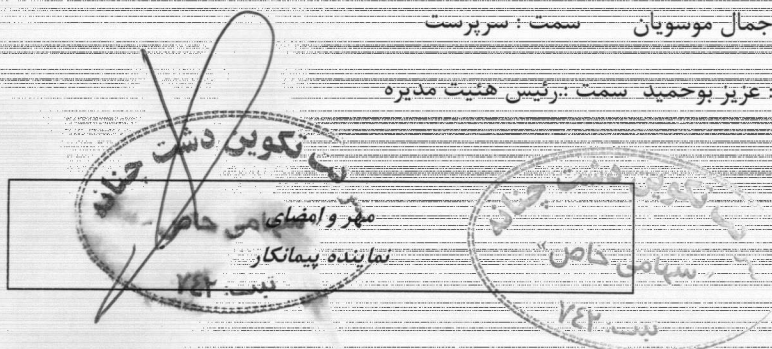 جمال موسویان سمت : سرپرست
: عزیز بوحمید سمت :.رئیس هئیت مدیره
شرکت تکوین دشت چنانه
سهامی خاص
ثبت: ۷۴۲
مهر و امضای
نماینده پیمانکار
شرکت تکوین دشت چنانه
سهامی خاص
ثبت: ۷۴۲